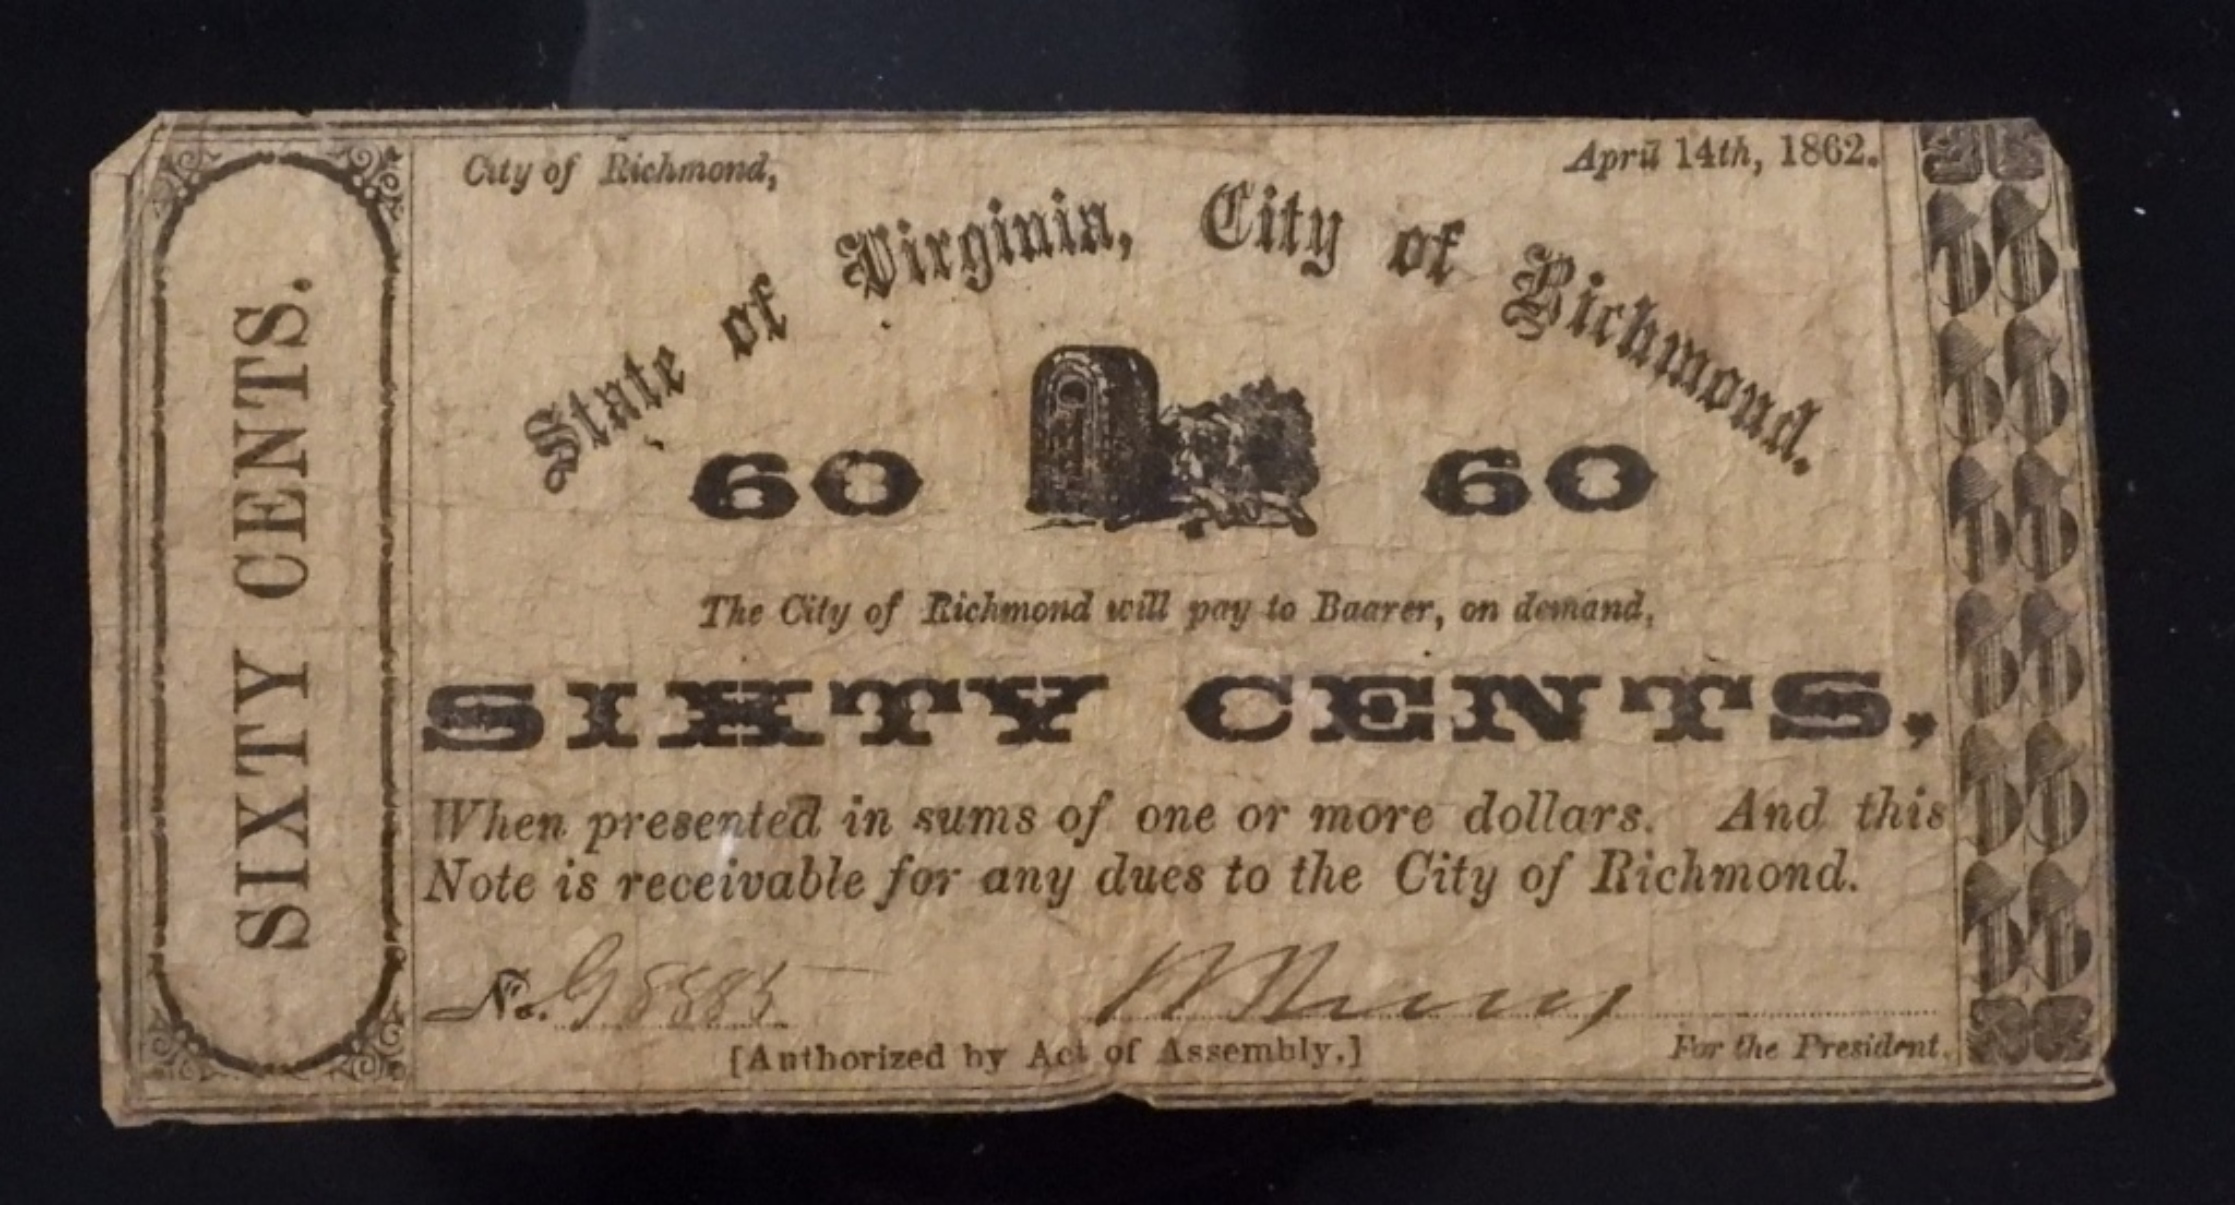 City of Richmond, April 14th, 1862.
State of Virginia, City of Richmond.
60 60
The City of Richmond will pay to Baarer, on demand,
SIXTY CENTS,
When presented in sums of one or more dollars. And this
Note is receivable for any dues to the City of Richmond.
No.
[Authorized by Act of Assembly.] For the President.
SIXTY CENTS.